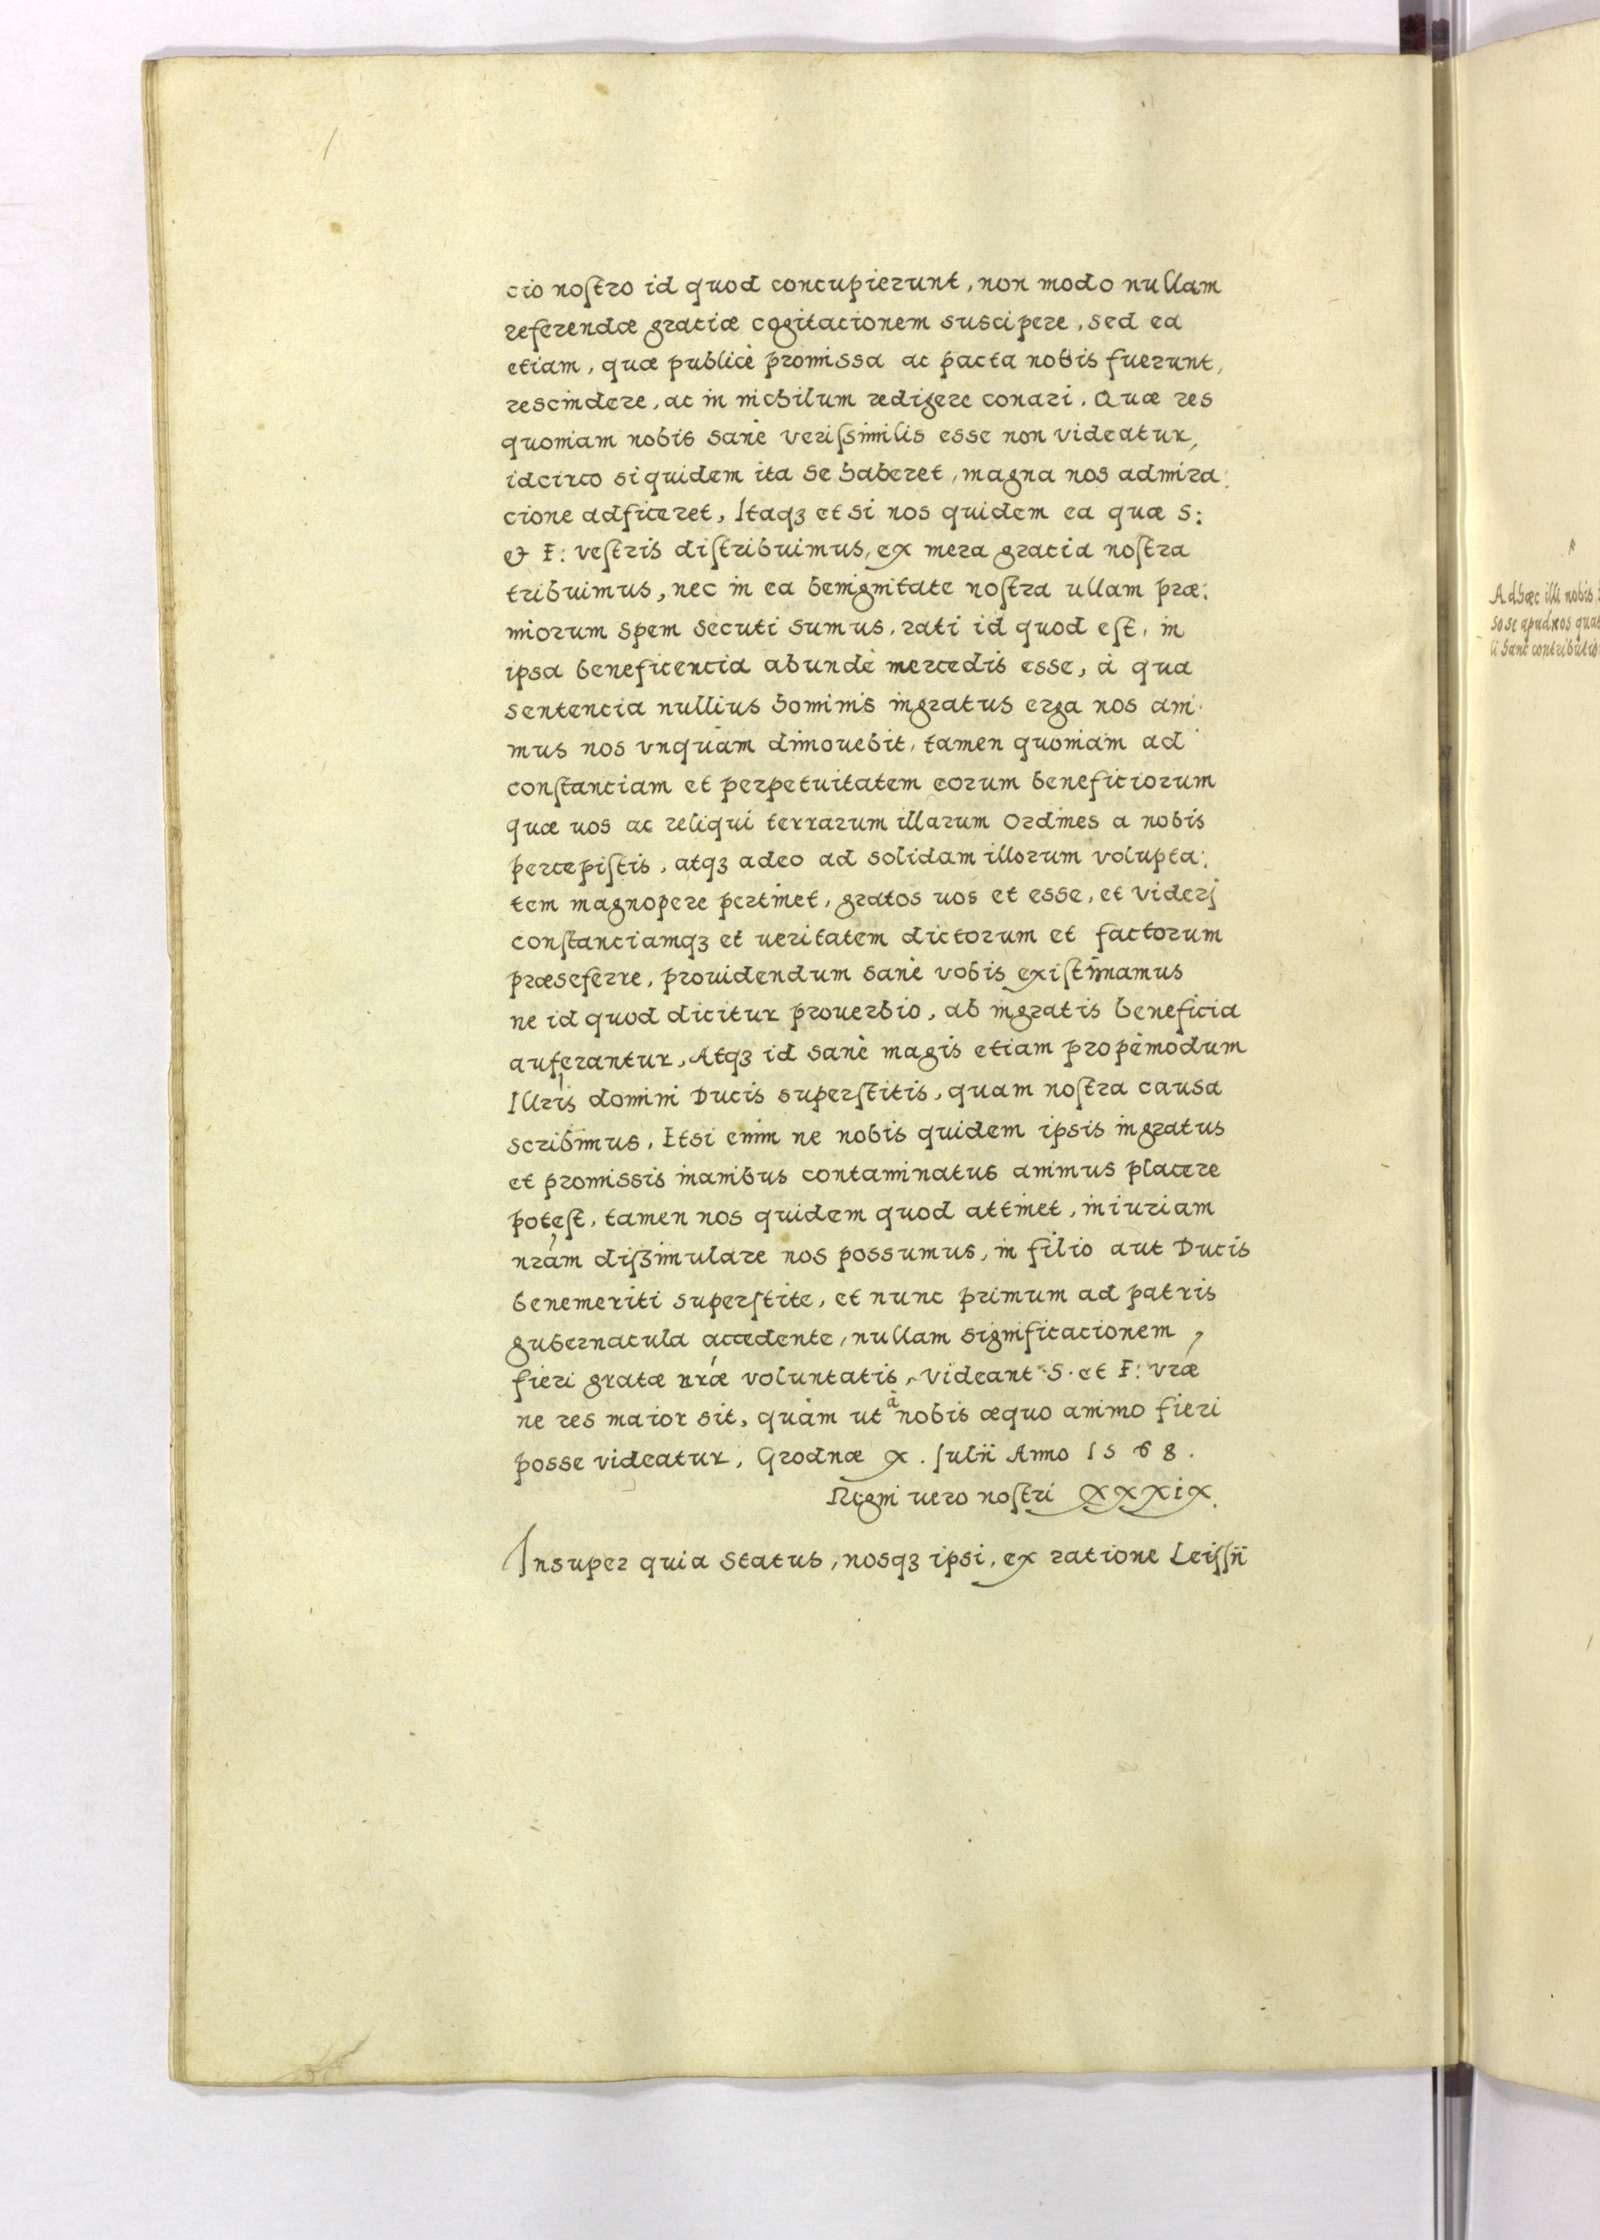 cio noſtro id quod concupierunt, non modo nullam
referendæ graciæ cogitacionem suscipere, sed ea
etiam, quæ publicè promissa ac pacta nobis fuerunt,
rescindere, ac in nichilum redigere conari. Quæ res
quoniam nobis sanè veriſsimilis esse non videatur,
idcirco siquidem ita se haberet, magna nos admira:
cione adficeret, Itaqꝫ et si nos quidem ea quæ S:
& F: veſtris diſtribuimus, ex mera gracia noſtra
tribuimus, nec in ea benignitate noſtra ullam præ:
miorum spem secuti sumus, rati id quod eſt, in
ipsa beneficencia abundè mercedis esse, à qua
sentencia nullius hominis ingratus erga nos ani
mus nos vnquàm dimouebit, tamen quoniàm ad
conſtanciam et perpetuitatem eorum beneficiorum
quæ uos ac reliqui terrarum illarum Ordines a nobis
percepiſtis, atqꝫ adeo ad solidam illorum volupta:
tem magnopere pertinet, gratos uos et esse, et viderj
conſtanciamqꝫ et ueritatem dictorum et factorum
præseferre, prouidendum sanè vobis exiſtimamus
ne id quod dicitur prouerbio, ab ingratis beneficia
auferantur, Atqꝫ id sanè magis etiam propèmodum
Illris domini Ducis superſtitis, quam noſtra causa
scribimus. Etsi enim ne nobis quidem ipsis ingratus
et promissis inanibus contaminatus animus placere
poteſt, tamen nos quidem quod attinet, iniuriam
nram diſsimulare nos possumus, in filio aut Ducis
benemeriti superſtite, et nunc primum ad patris
gubernacula accedente, nullam significacionem
fieri gratæ nræ voluntatis, videant S. et F: vræ
ne res maior sit, quàm ut à nobis æquo animo fieri
posse videatur, Grodnæ x. Julii Anno 1568.
Regni uero noſtri XXXIX.
Insuper quia Status, nosqꝫ ipsi, ex ratione Leiſſii
Adhæc illi nobis